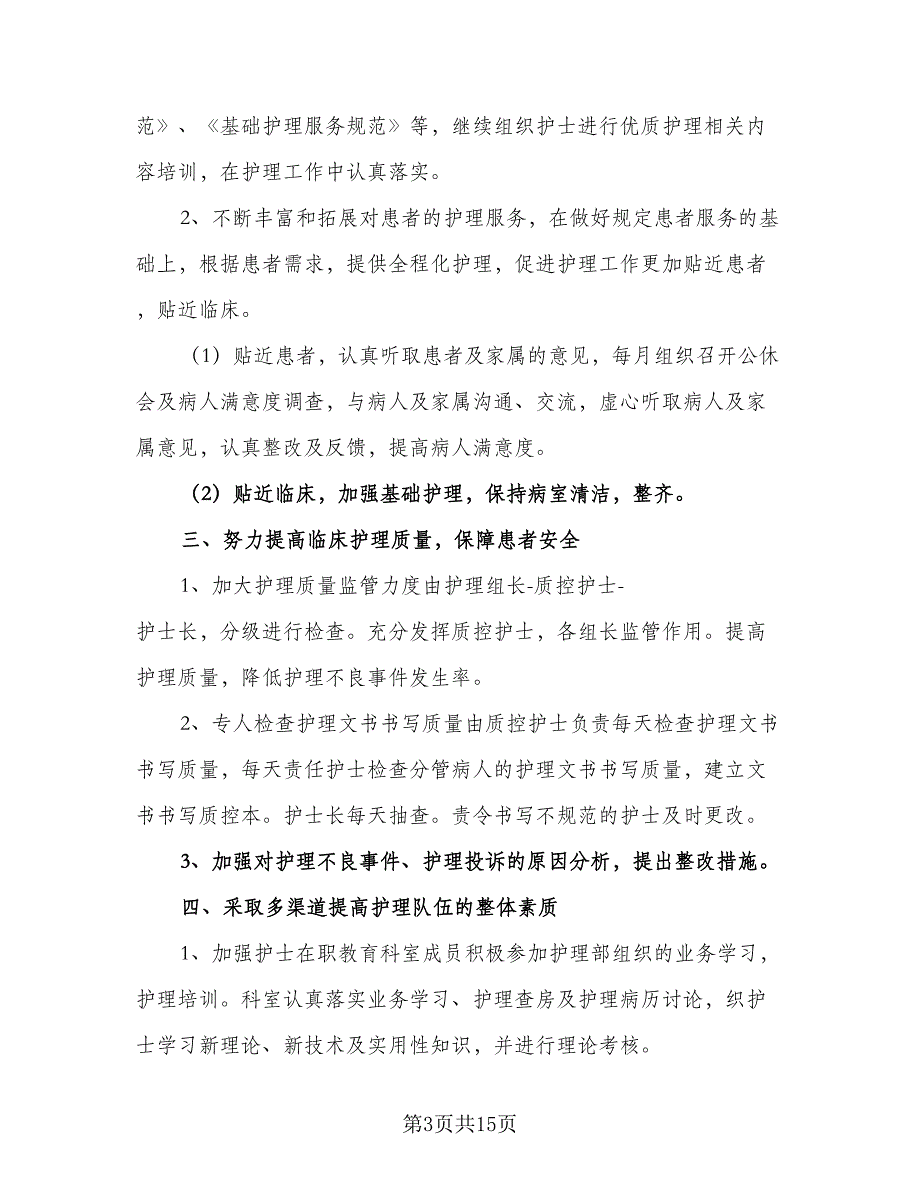 范》、《基础护理服务规范》等，继续组织护士进行优质护理相关内
容培训，在护理工作中认真落实。
2、不断丰富和拓展对患者的护理服务，在做好规定患者服务的基
础上，根据患者需求，提供全程化护理，促进护理工作更加贴近患者
，贴近临床。
（1）贴近患者，认真听取患者及家属的意见，每月组织召开公休
会及病人满意度调查，与病人及家属沟通、交流，虚心听取病人及家
属意见，认真整改及反馈，提高病人满意度。
（2）贴近临床，加强基础护理，保持病室清洁，整齐。
三、努力提高临床护理质量，保障患者安全
1、加大护理质量监管力度由护理组长-质控护士-
护士长，分级进行检查。充分发挥质控护士，各组长监管作用。提高
护理质量，降低护理不良事件发生率。
2、专人检查护理文书书写质量由质控护士负责每天检查护理文书
书写质量，每天责任护士检查分管病人的护理文书书写质量，建立文
书书写质控本。护士长每天抽查。责令书写不规范的护士及时更改。
3、加强对护理不良事件、护理投诉的原因分析，提出整改措施。
四、采取多渠道提高护理队伍的整体素质
1、加强护士在职教育科室成员积极参加护理部组织的业务学习，
护理培训。科室认真落实业务学习、护理查房及护理病历讨论，织护
士学习新理论、新技术及实用性知识，并进行理论考核。
第3页共15页